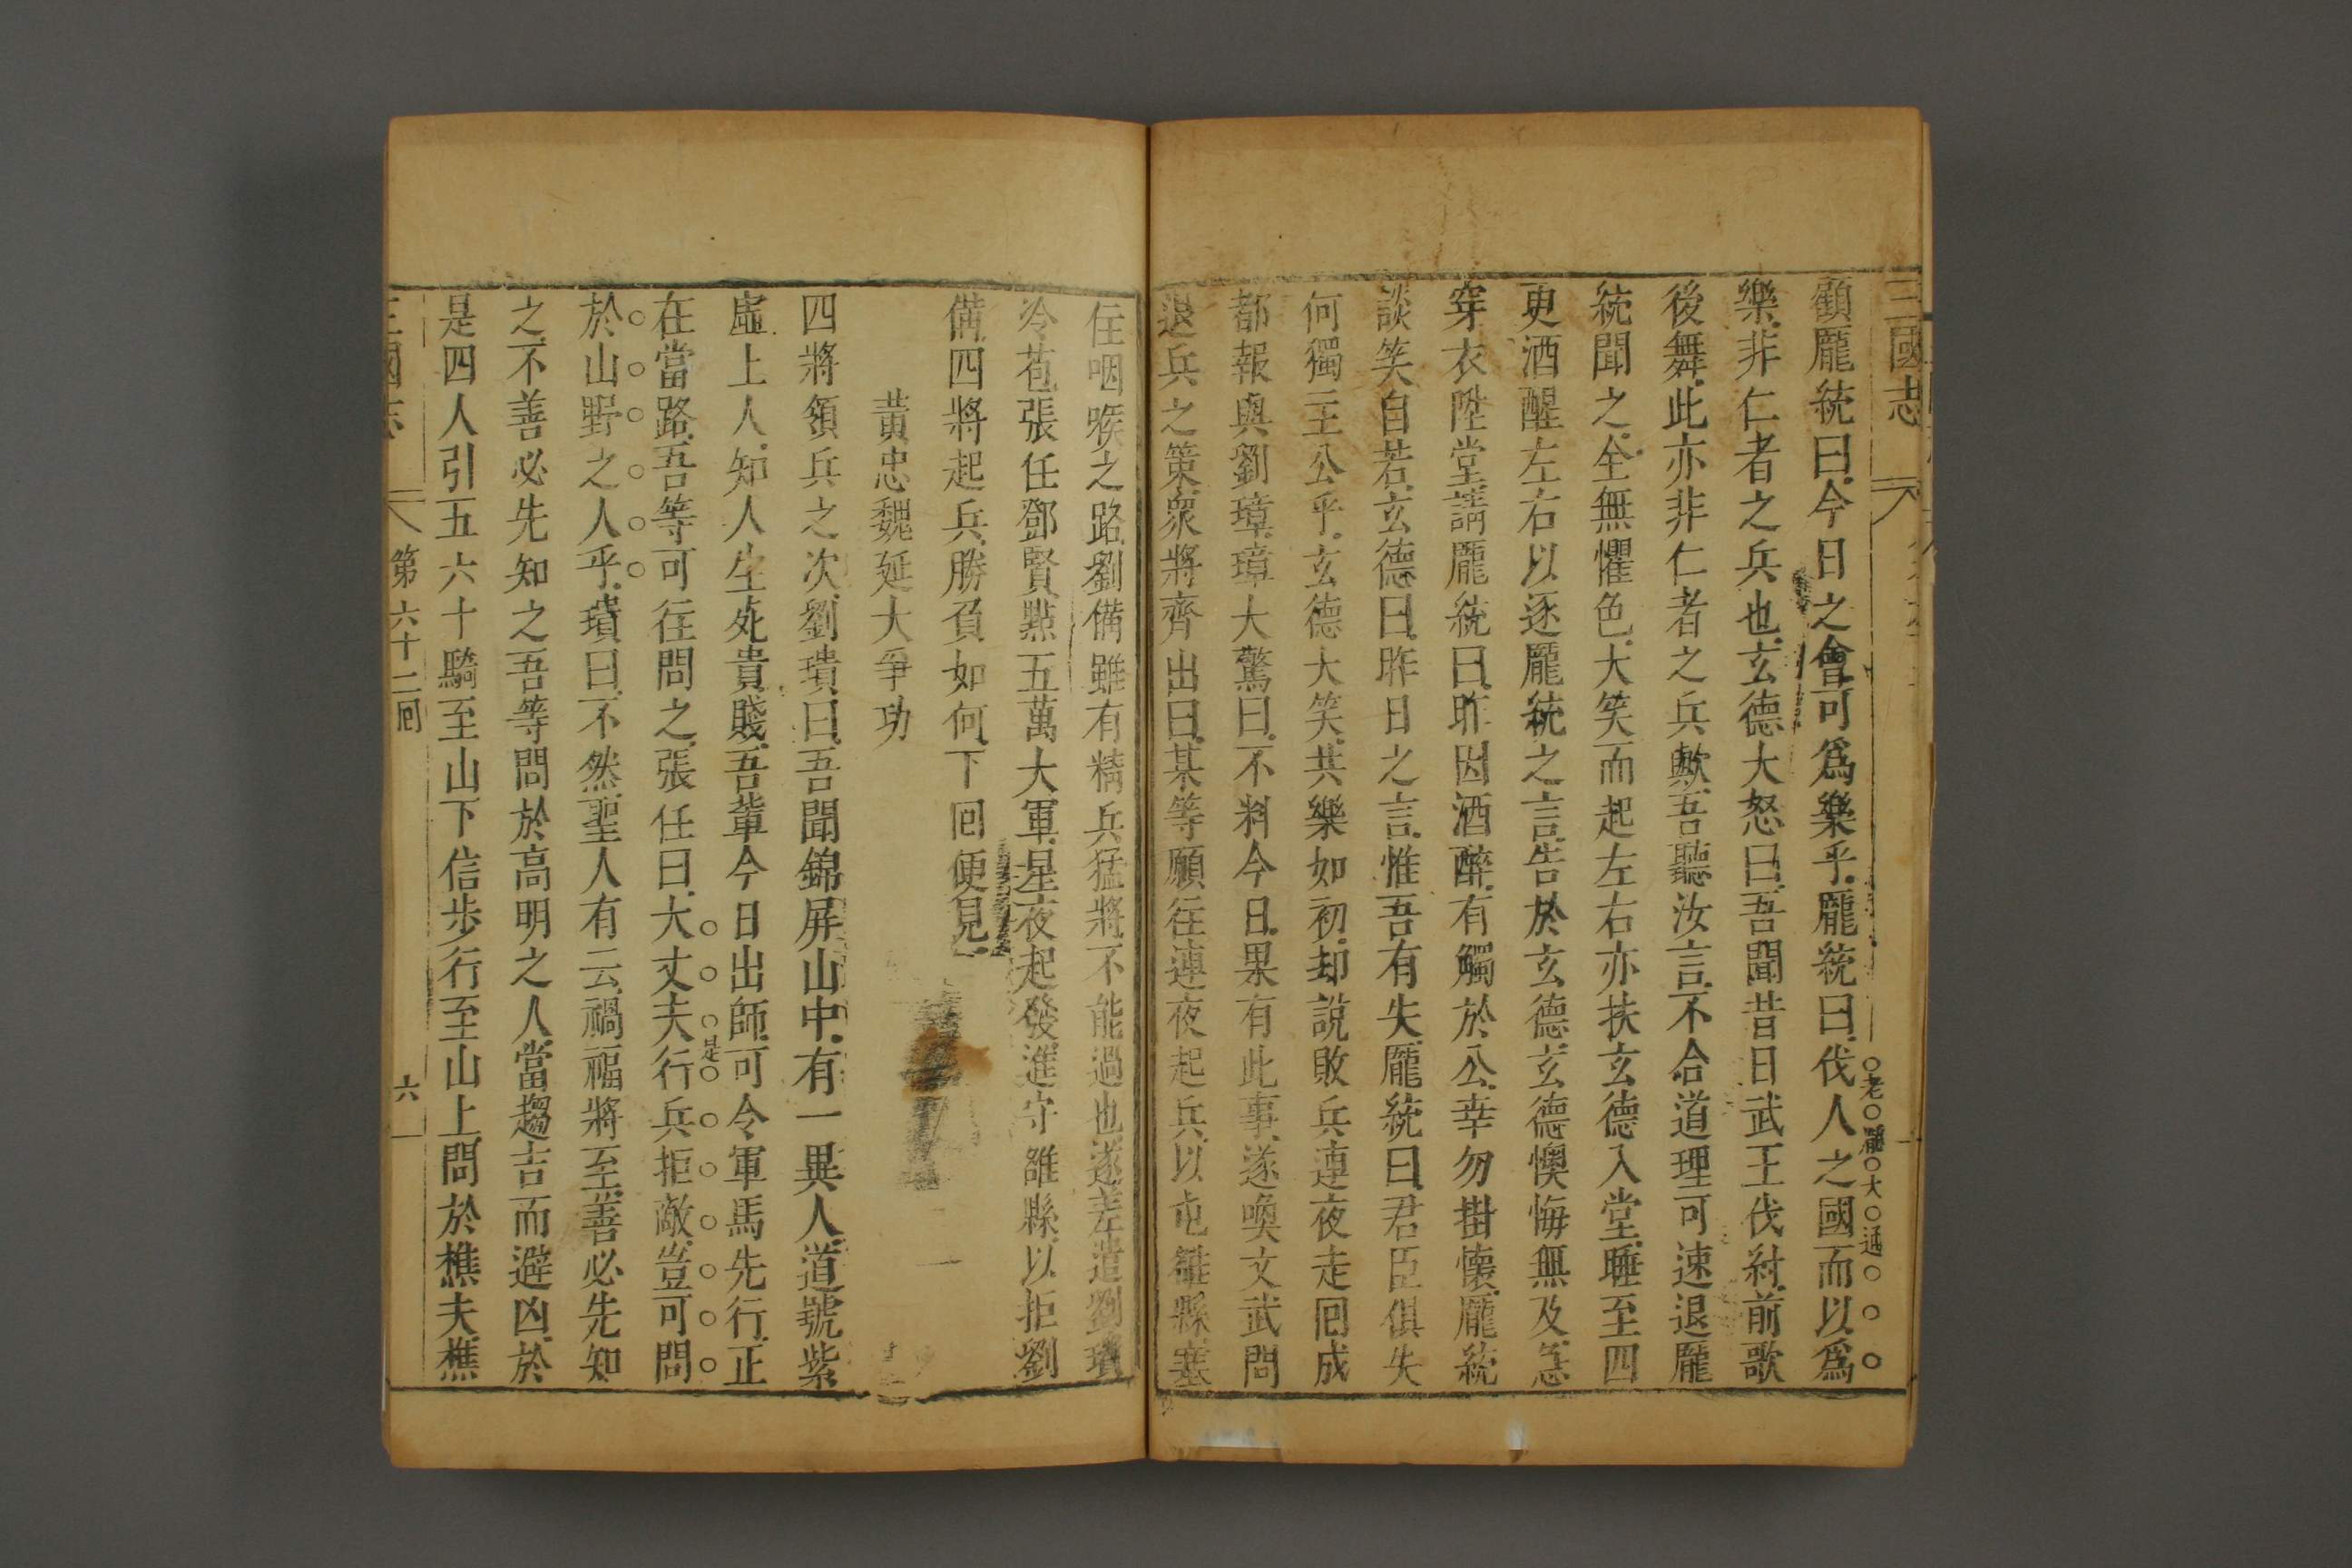 三國志
○老○龐○大○通○○○
顧龐統曰今日之會可爲樂乎龐統曰伐人之國而以爲
樂非仁者之兵也玄德大怒曰吾聞昔日武王伐紂前歌
後舞此亦非仁者之兵歟吾聽汝言不合道理可速退龐
統聞之全無懼色大笑而起左右亦扶玄德入堂睡至四
更酒醒左右以逐龐統之言告於玄德玄德懊悔無及急
穿衣陞堂請龐統曰昨因酒醉有觸於公幸勿掛懷龐統
談笑自若玄德曰昨日之言惟吾有失龐統曰君臣俱失
何獨主公乎玄德大笑共樂如初却說敗兵連夜走囘成
都報與劉璋璋大驚曰不料今日果有此事遂喚文武問
退兵之策衆將齊出曰某等願往連夜起兵以屯雒縣塞
住咽喉之路劉備雖有精兵猛將不能過也遂差遣劉璝
冷苞張任鄧賢點五萬大軍星夜起發進守雒縣以拒劉
備四將起兵勝負如何下囘便見
黃忠魏延大爭功
四將領兵之次劉璝曰吾聞錦屏山中有一異人道號紫
虛上人知人生死貴賤吾輩今日出師可令軍馬先行正
在當路吾等可往問之張任曰大丈夫行兵拒敵豈可問
○○○是○○○○○○○
於山野之人乎璝曰不然聖人有云禍福將至善必先知
○○○○○○
之不善必先知之吾等問於高明之人當趨吉而避凶於
是四人引五六十騎至山下信步行至山上問於樵夫樵
三國志
第六十二囘
六